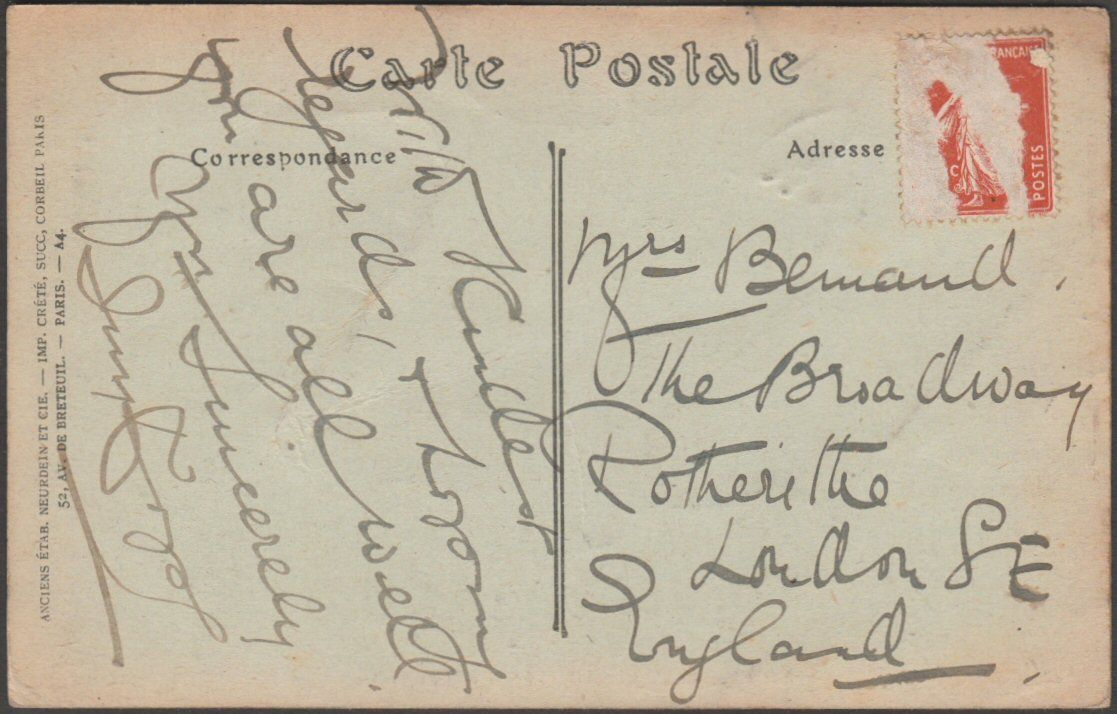 Carte Postale
Correspondance
Adresse
Kindest
regards, I hope
you are all well
Yrs Sincerely
Mrs Bernand.
The Broadway
Rotherithe
London SE
England
RANÇAISE
POSTES
C
ANCIENS ÉTAB. NEURDEIN ET CIE. — IMP. CRÉTÉ, SUCC, CORBEIL PARIS
52, AV. DE BRETEUIL. — PARIS. — A4.